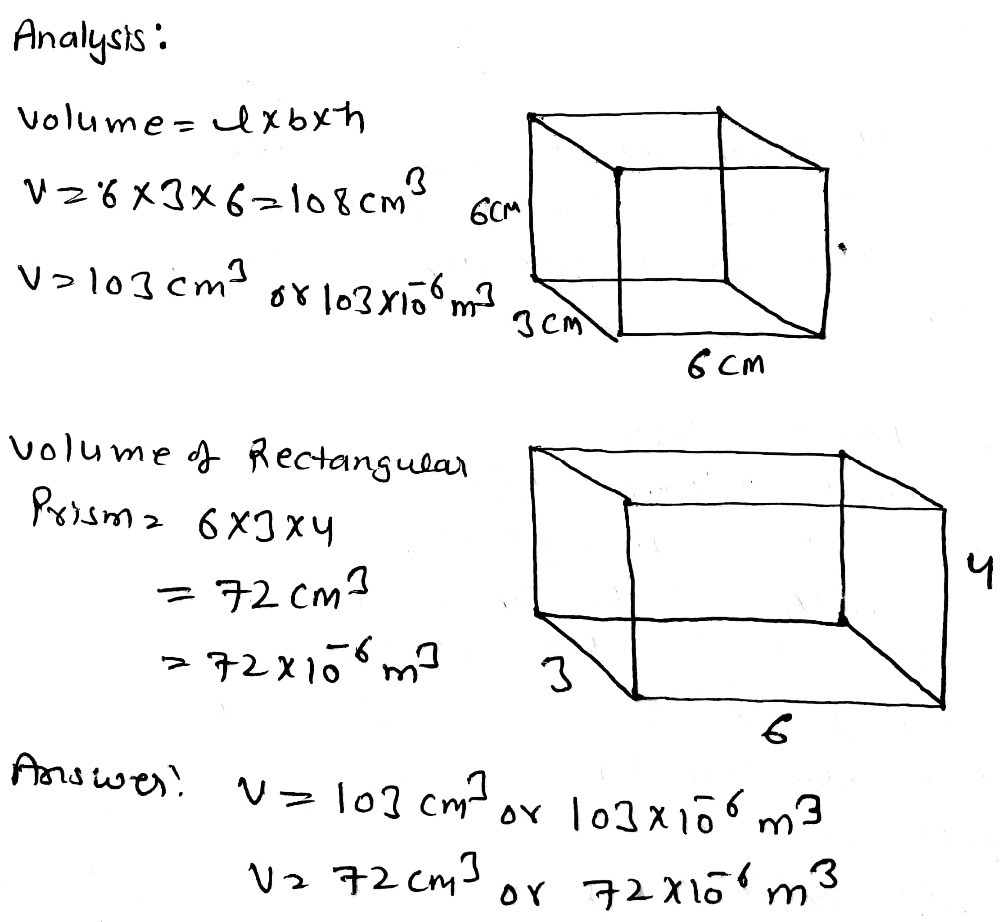 Analysis:
Volume = l x b x h
V = 6 X 3 X 6 = 108 cm³
V = 103 cm³ or 103 X 10⁻⁶ m³
6 CM
3 CM
6 CM
Volume of Rectangular
Prism = 6 X 3 X 4
= 72 cm³
= 72 X 10⁻⁶ m³
4
3
6
Answer:
V = 103 cm³ or 103 X 10⁻⁶ m³
V = 72 cm³ or 72 X 10⁻⁶ m³